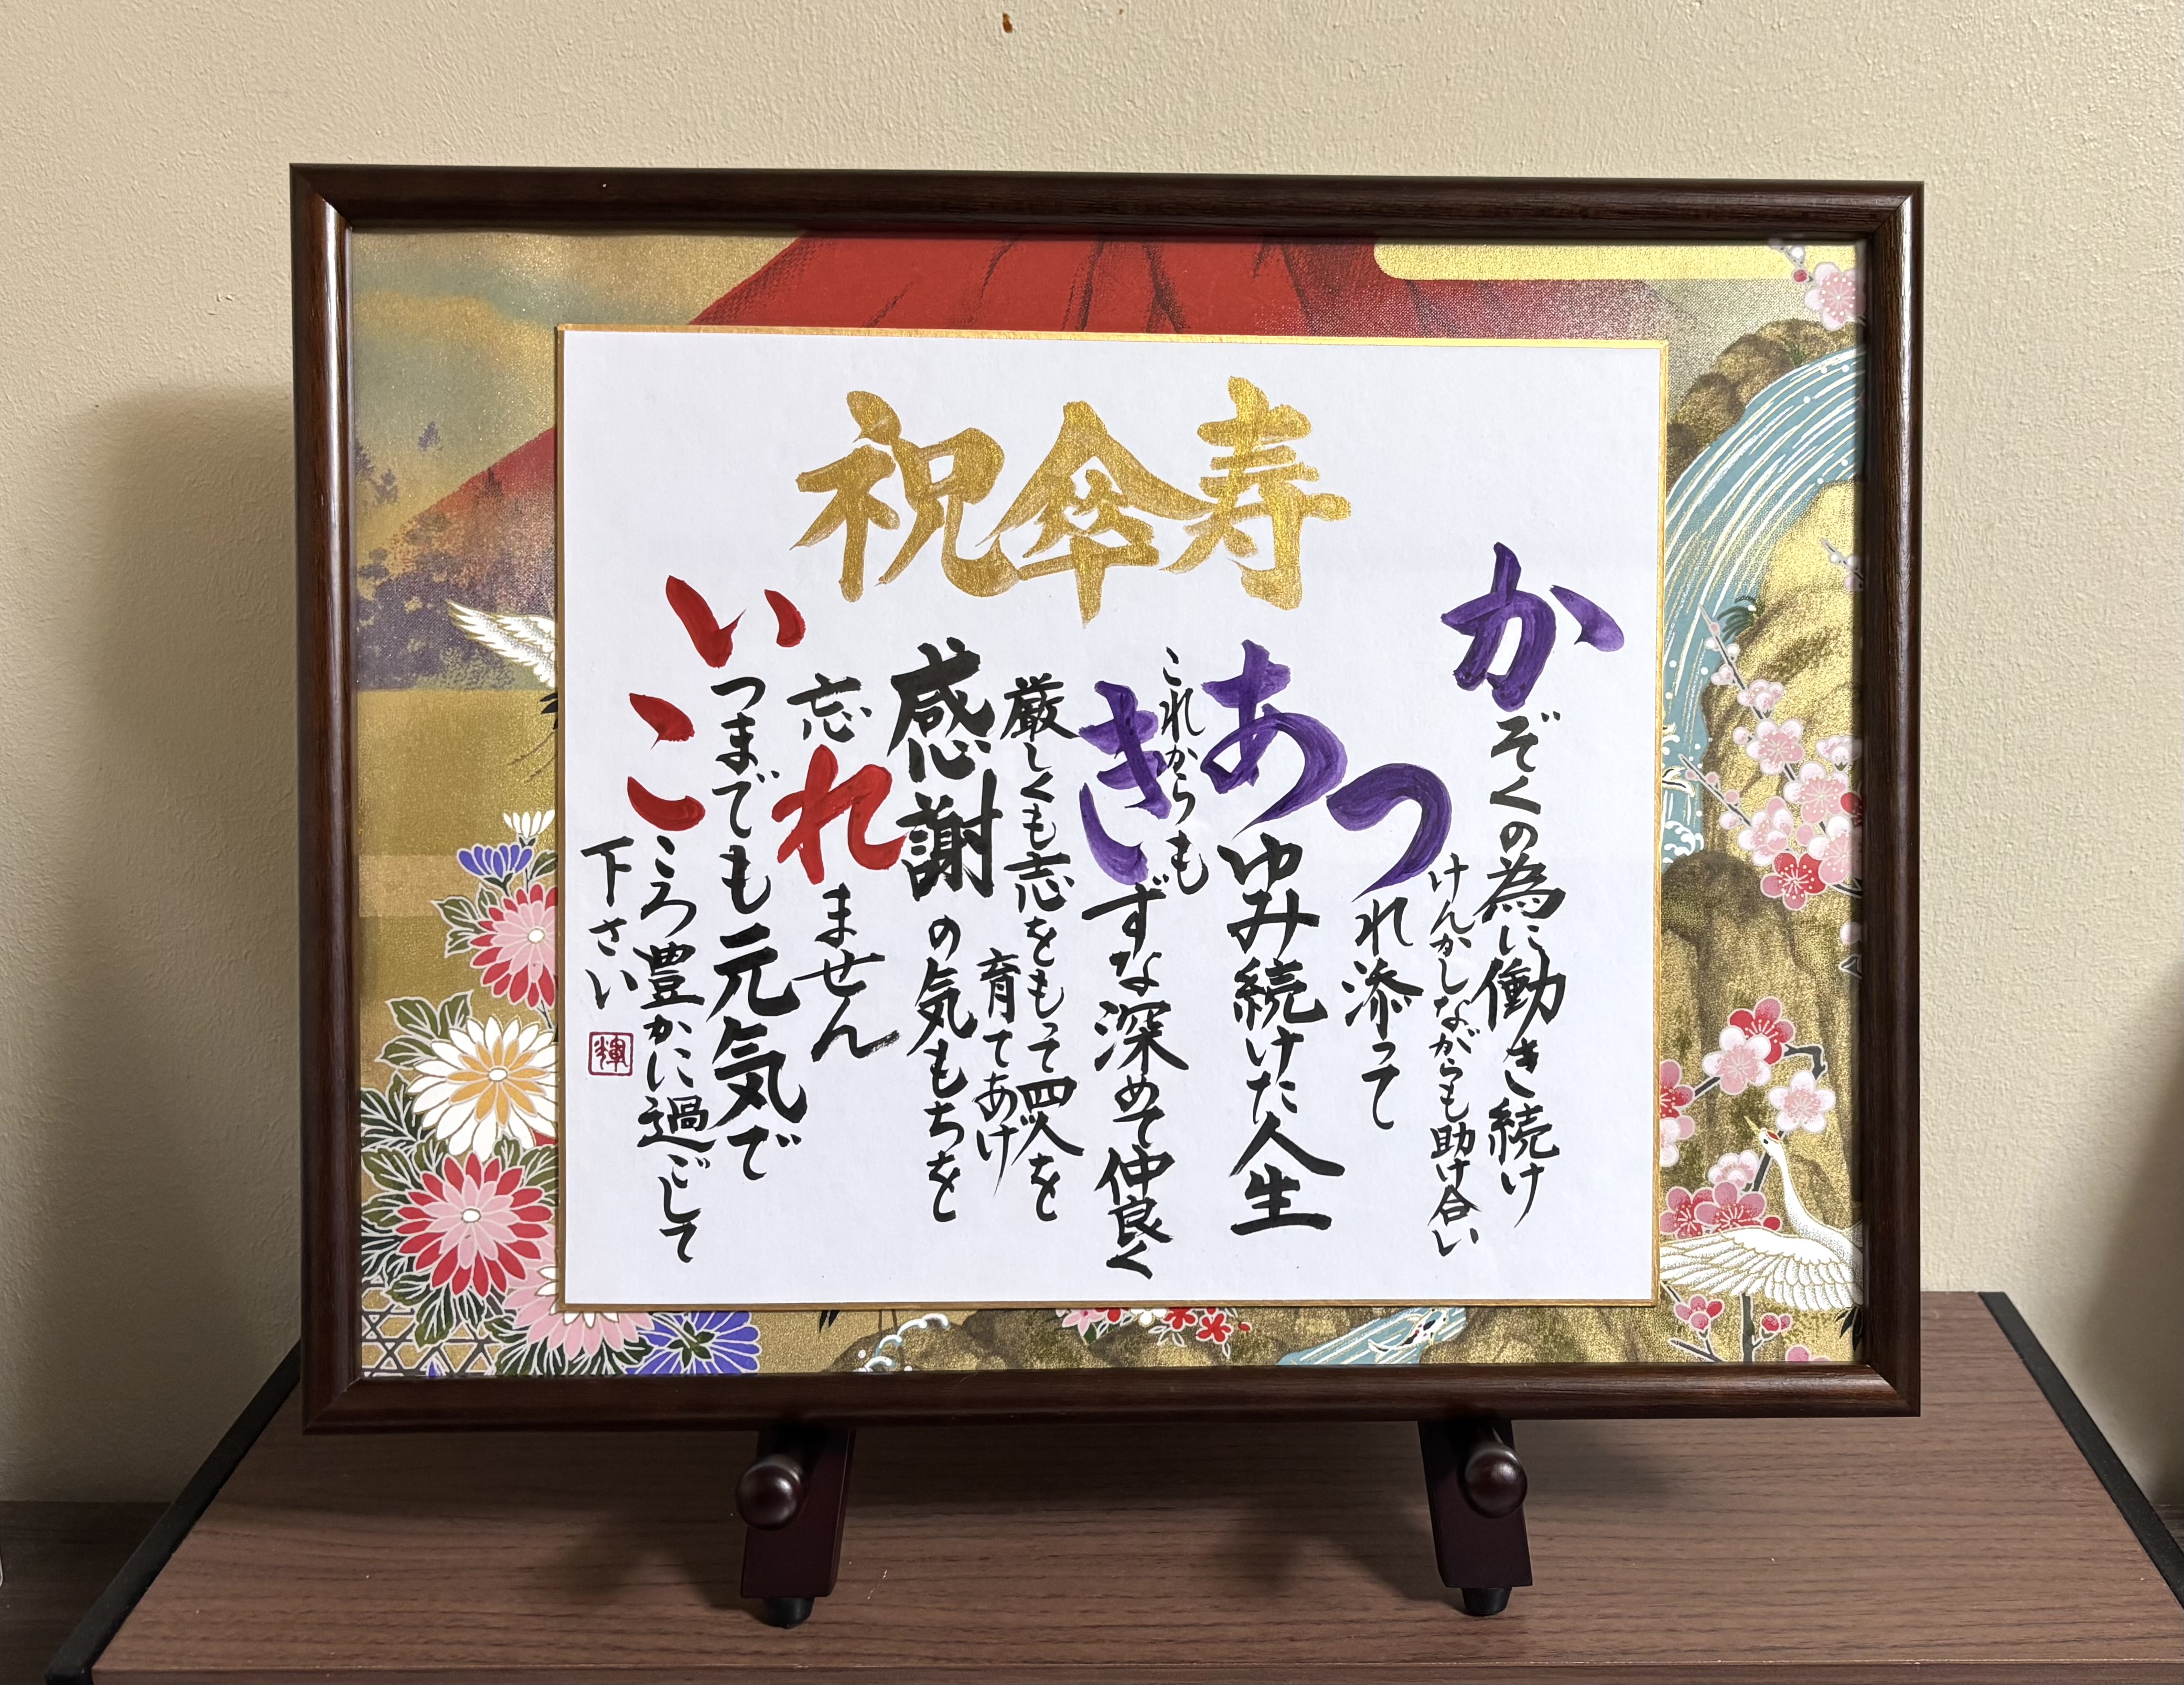 祝傘寿
かぞくの為に働き続け
けんかしながらも助け合い
つれ添って
あゆみ続けた人生
これからも
きずな深めて仲良く
厳しくも志をもって四人を
育てあげ
感謝の気もちを
忘れません
いつまでも元気で
こころ豊かに過ごして
下さい
輝